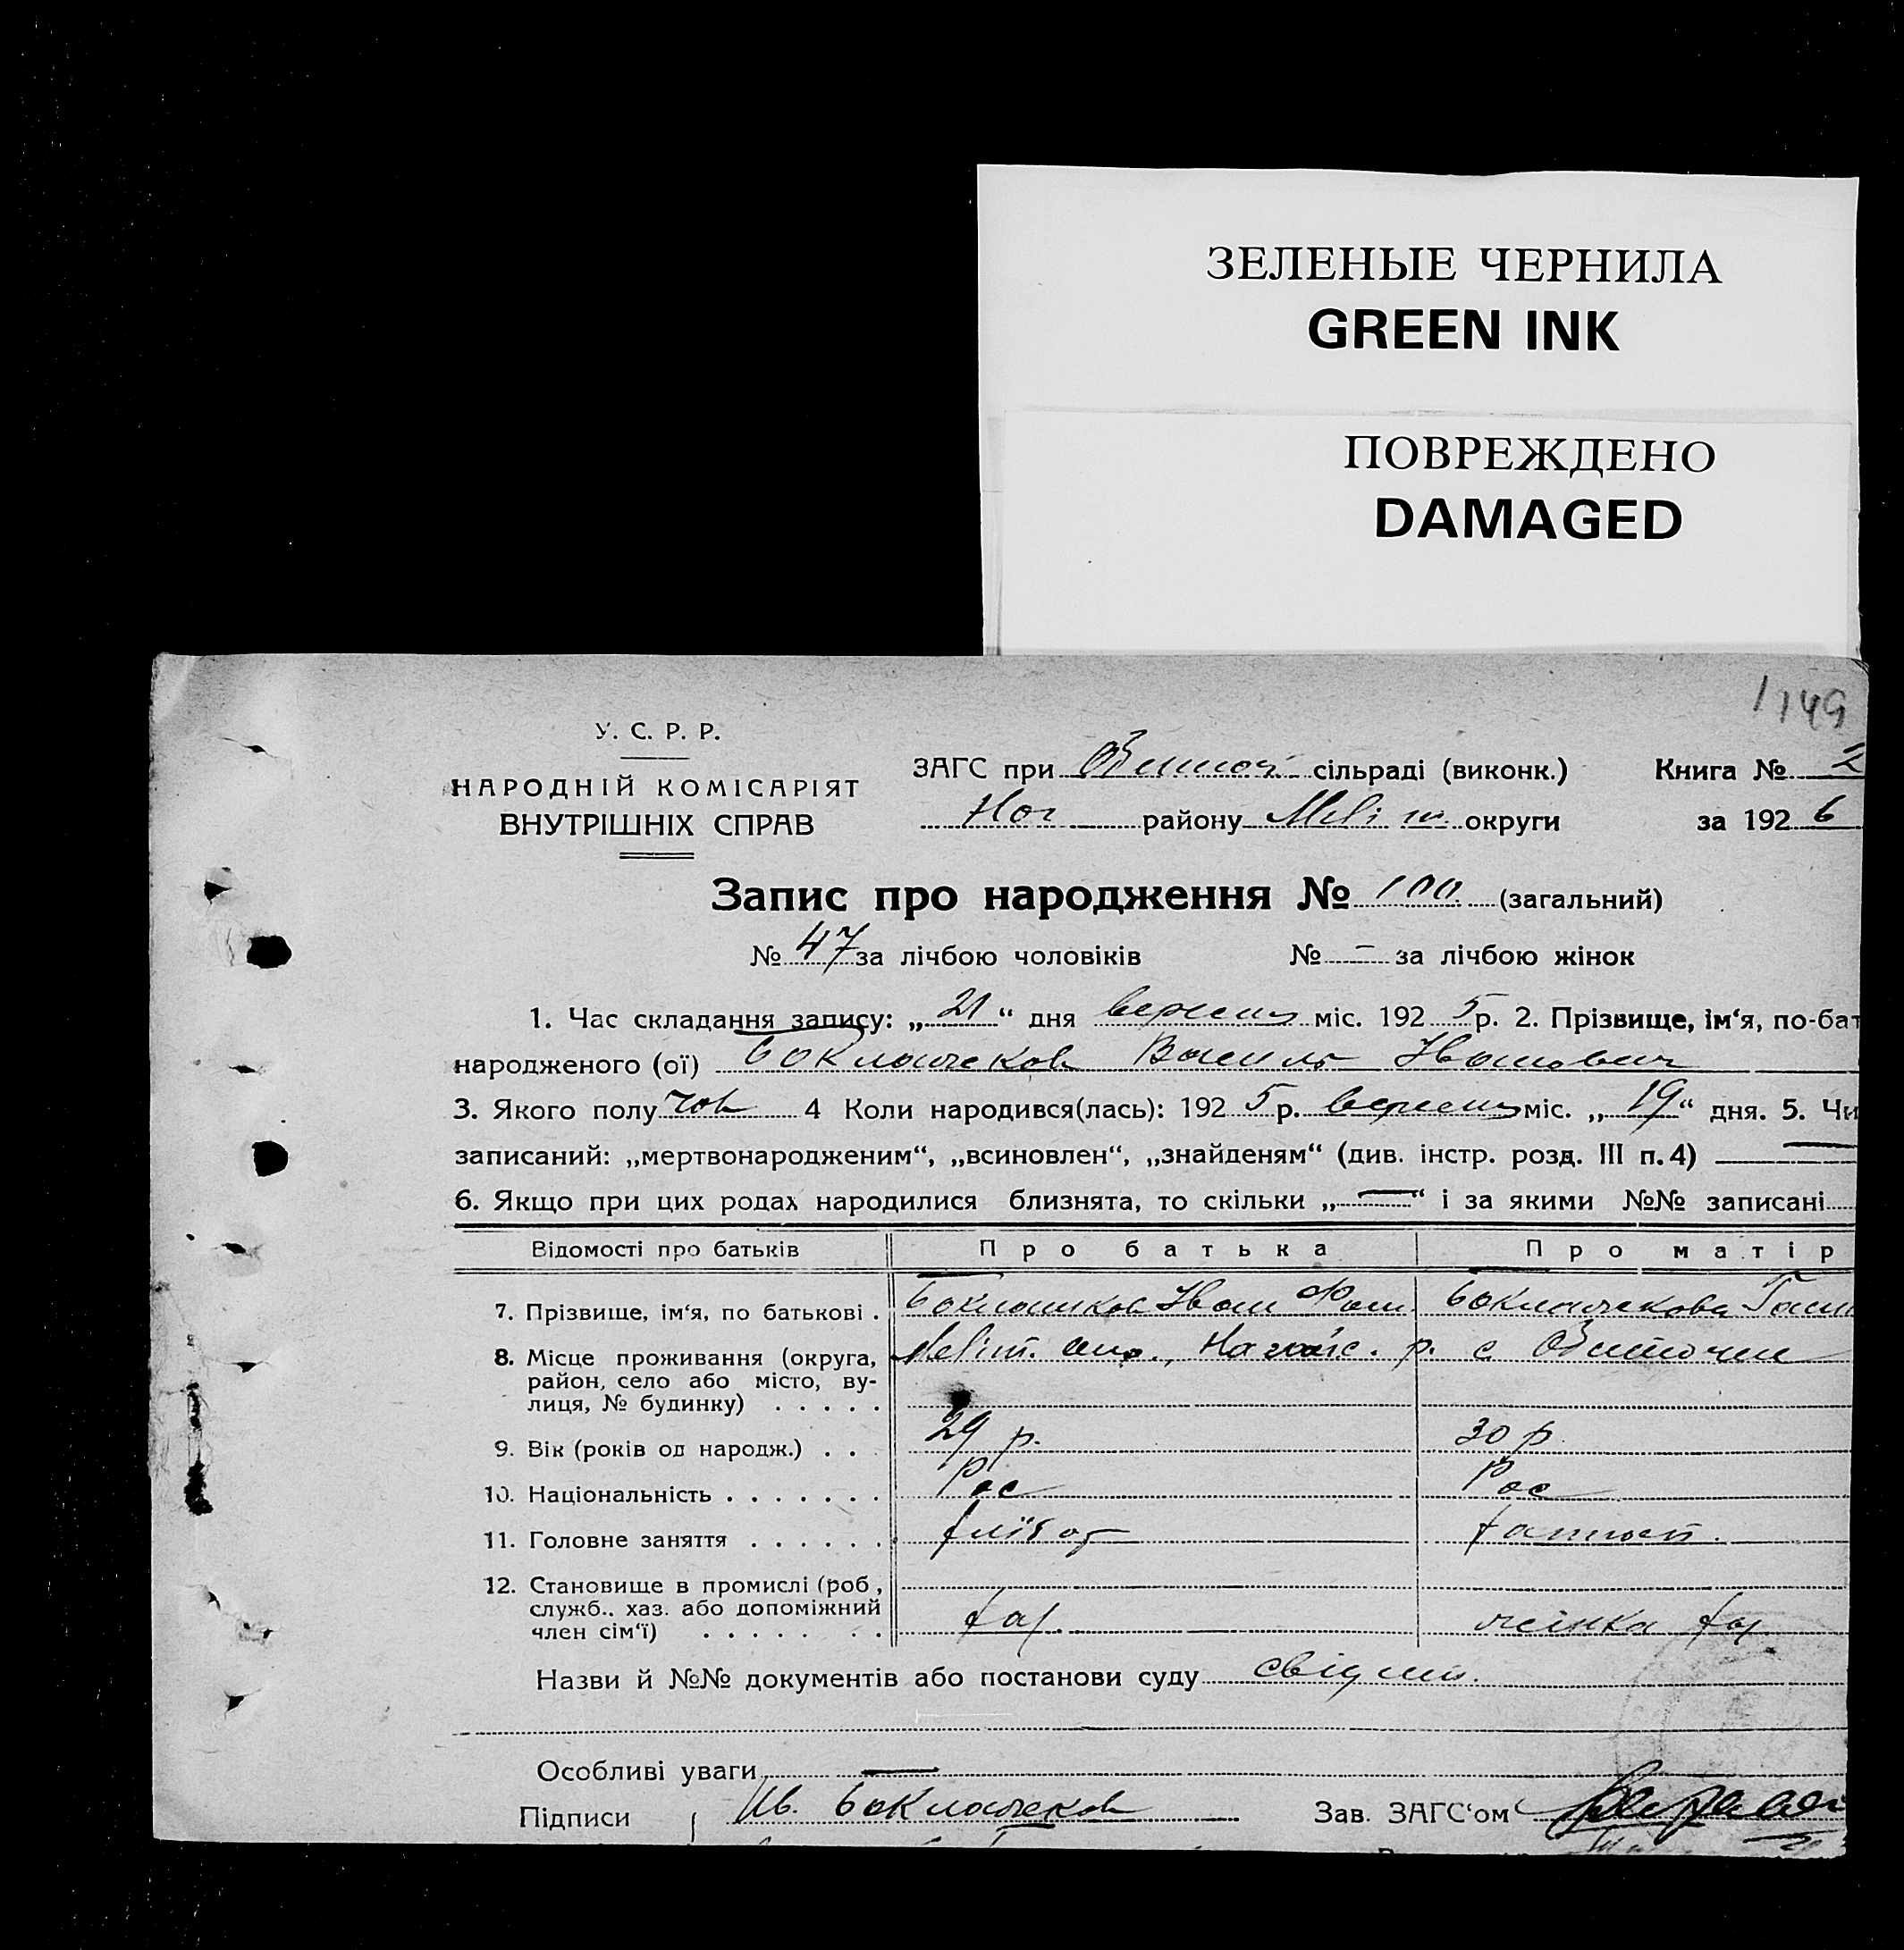 ЗЕЛЕНЫЕ ЧЕРНИЛА
GREEN INK
ПОВРЕЖДЕНО
DAMAGED
1149
У. С. Р. Р.
НАРОДНІЙ КОМІСАРІЯТ
ВНУТРІШНІХ СПРАВ
ЗАГС при сільраді (виконк.) Книга № 2
Ног району Меліт округи за 192 6
Запис про народження № 100 (загальний)
№ 47 за лічбою чоловіків № – за лічбою жінок
1. Час складання запису: „21“ дня вересня міс. 192 5 р. 2. Прізвище, ім‘я, по-бат
народженого (ої) Василь Іванович
3. Якого полу чов 4 Коли народився(лась): 192 5 р. вересня міс. „19“ дня. 5. Чи
записаний: „мертвонародженим“, „всиновлен“, „знайденям“ (див. інстр. розд. III п. 4) —
6. Якщо при цих родах народилися близнята, то скільки „—“ і за якими №№ записані
Відомості про батьків Про батька Про матір
7. Прізвище, ім‘я, по батькові . Іван
8. Місце проживання (округа, Меліт. окр., Ногайс. р. с
район, село або місто, ву-
лиця, № будинку) . . . . .
9. Вік (років од народж.) . . 29 р. 30 р.
10. Національність . . . . . . . Рос Рос
11. Головне заняття . . . . . . хлібор
12. Становище в промислі (роб,
служб.. хаз. або допоміжний
член сім‘ї) . . . . . . . . хаз. жінка хаз.
Назви й №№ документів або постанови суду
Особливі уваги —
Підписи Ив. Зав. ЗАГС‘ом